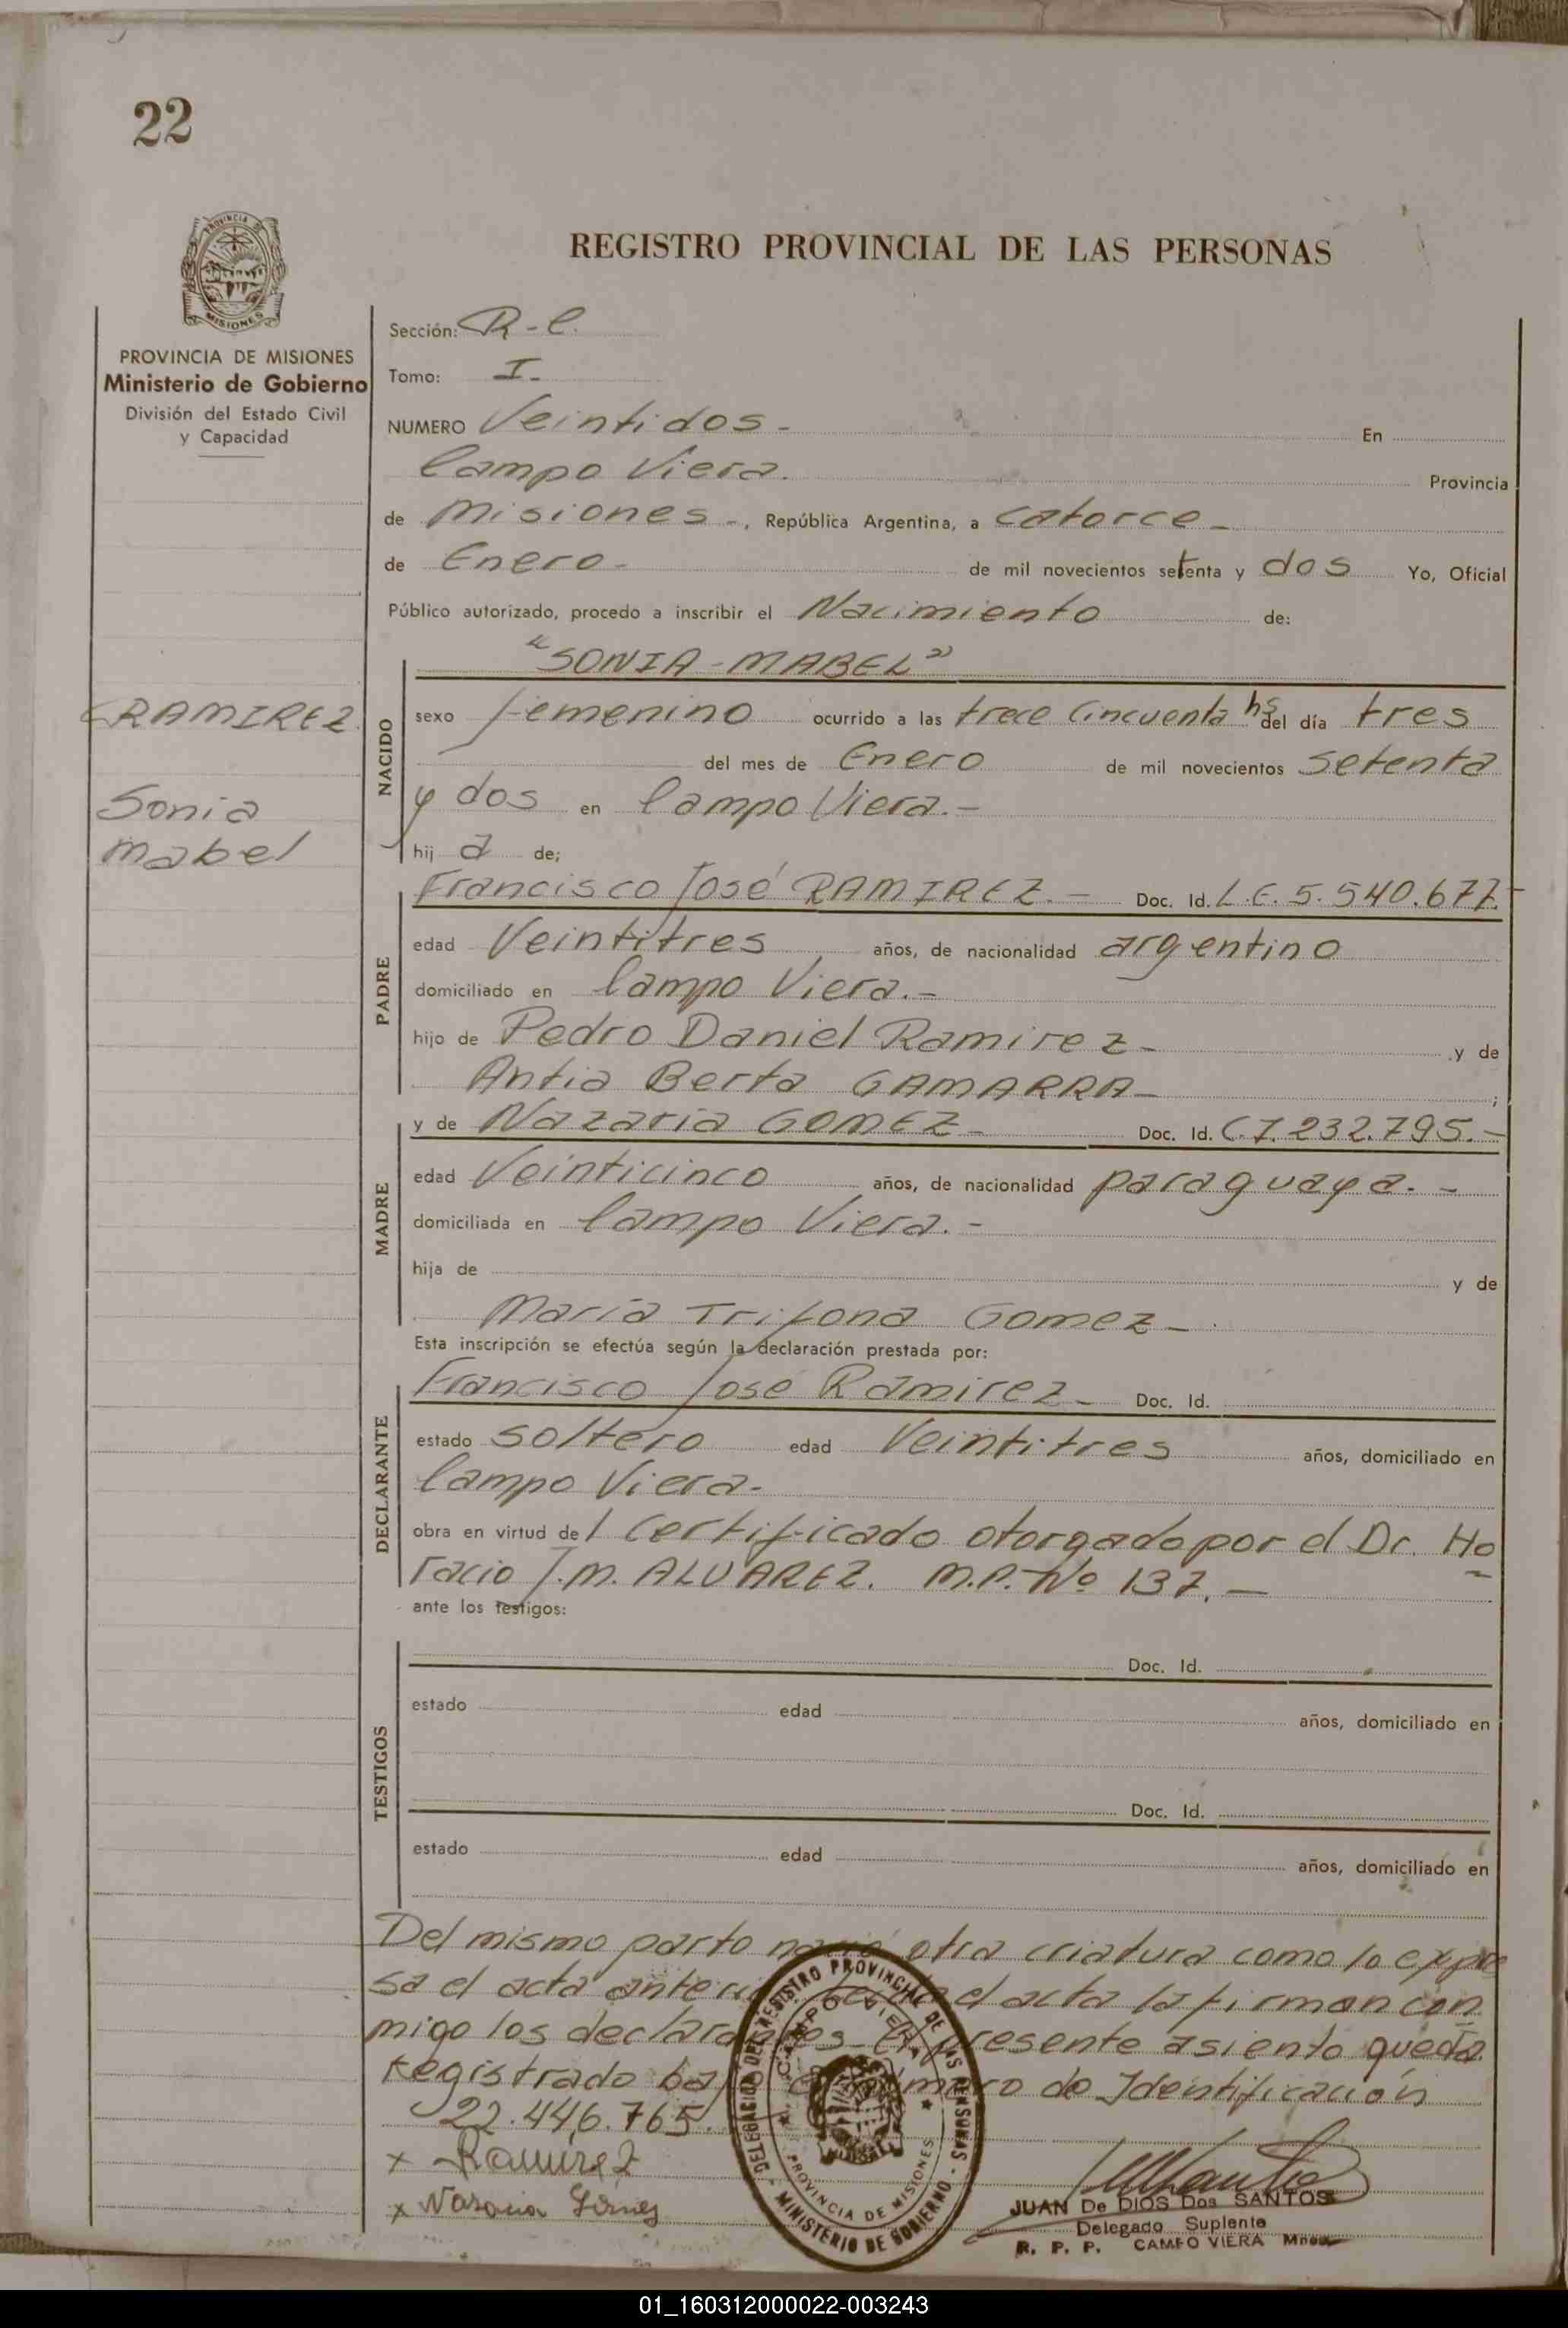 22
PROVINCIA DE MISIONES
Ministerio de Gobierno
División del Estado Civil
y Capacidad
REGISTRO PROVINCIAL DE LAS PERSONAS
Sección: R-C.
Tomo: I-
NUMERO Veintidos- En
Campo Viera. Provincia
de Misiones-, República Argentina, a catorce-
de Enero- de mil novecientos setenta y dos Yo, Oficial
Público autorizado, procedo a inscribir el Nacimiento de:
"SONIA-MABEL"
RAMIREZ
Sonia
Mabel
NACIDO
sexo femenino ocurrido a las trece Cincuenta hs del día tres
del mes de Enero de mil novecientos setenta
y dos en Campo Viera.-
hij a de;
PADRE
Francisco José RAMIREZ.- Doc. Id. L.E. 5.540.677.-
edad Veintitres años, de nacionalidad argentino
domiciliado en Campo Viera.-
hijo de Pedro Daniel Ramirez- y de
Antia Berta GAMARRA-;
MADRE
y de Nazaria GOMEZ- Doc. Id. C.I. 232.795.-
edad Veinticinco años, de nacionalidad paraguaya.-
domiciliada en Campo Viera.-
hija de y de
María Trifona Gomez-
Esta inscripción se efectúa según la declaración prestada por:
DECLARANTE
Francisco José Ramirez- Doc. Id.
estado soltero edad Veintitres años, domiciliado en
Campo Viera-
obra en virtud del Certificado otorgado por el Dr. Ho
racio J.M. ALVAREZ. M.P. Nº 137.-
ante los testigos:
TESTIGOS
Doc. Id.
estado edad años, domiciliado en
Doc. Id.
estado edad años, domiciliado en
Del mismo parto nació otra criatura como lo expre
sa el acta anterior. el acta la firman con
migo los declarantes- El presente asiento queda
registrado bajo el número de Identificación
22.446.765.
x Ramírez
x Nazaria Gómez
DELEGACION DEL REGISTRO PROVINCIAL DE LAS PERSONAS - MINISTERIO DE GOBIERNO -
CAMPO VIERA
PROVINCIA DE MISIONES
JUAN De DIOS Dos SANTOS
Delegado Suplente
R. P. P. CAMPO VIERA Mnes.
01_160312000022-003243